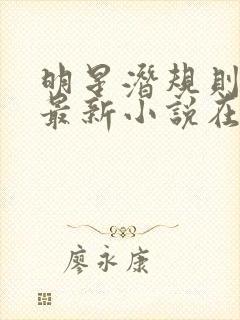 明星潛規則
最新小說在
廖永康